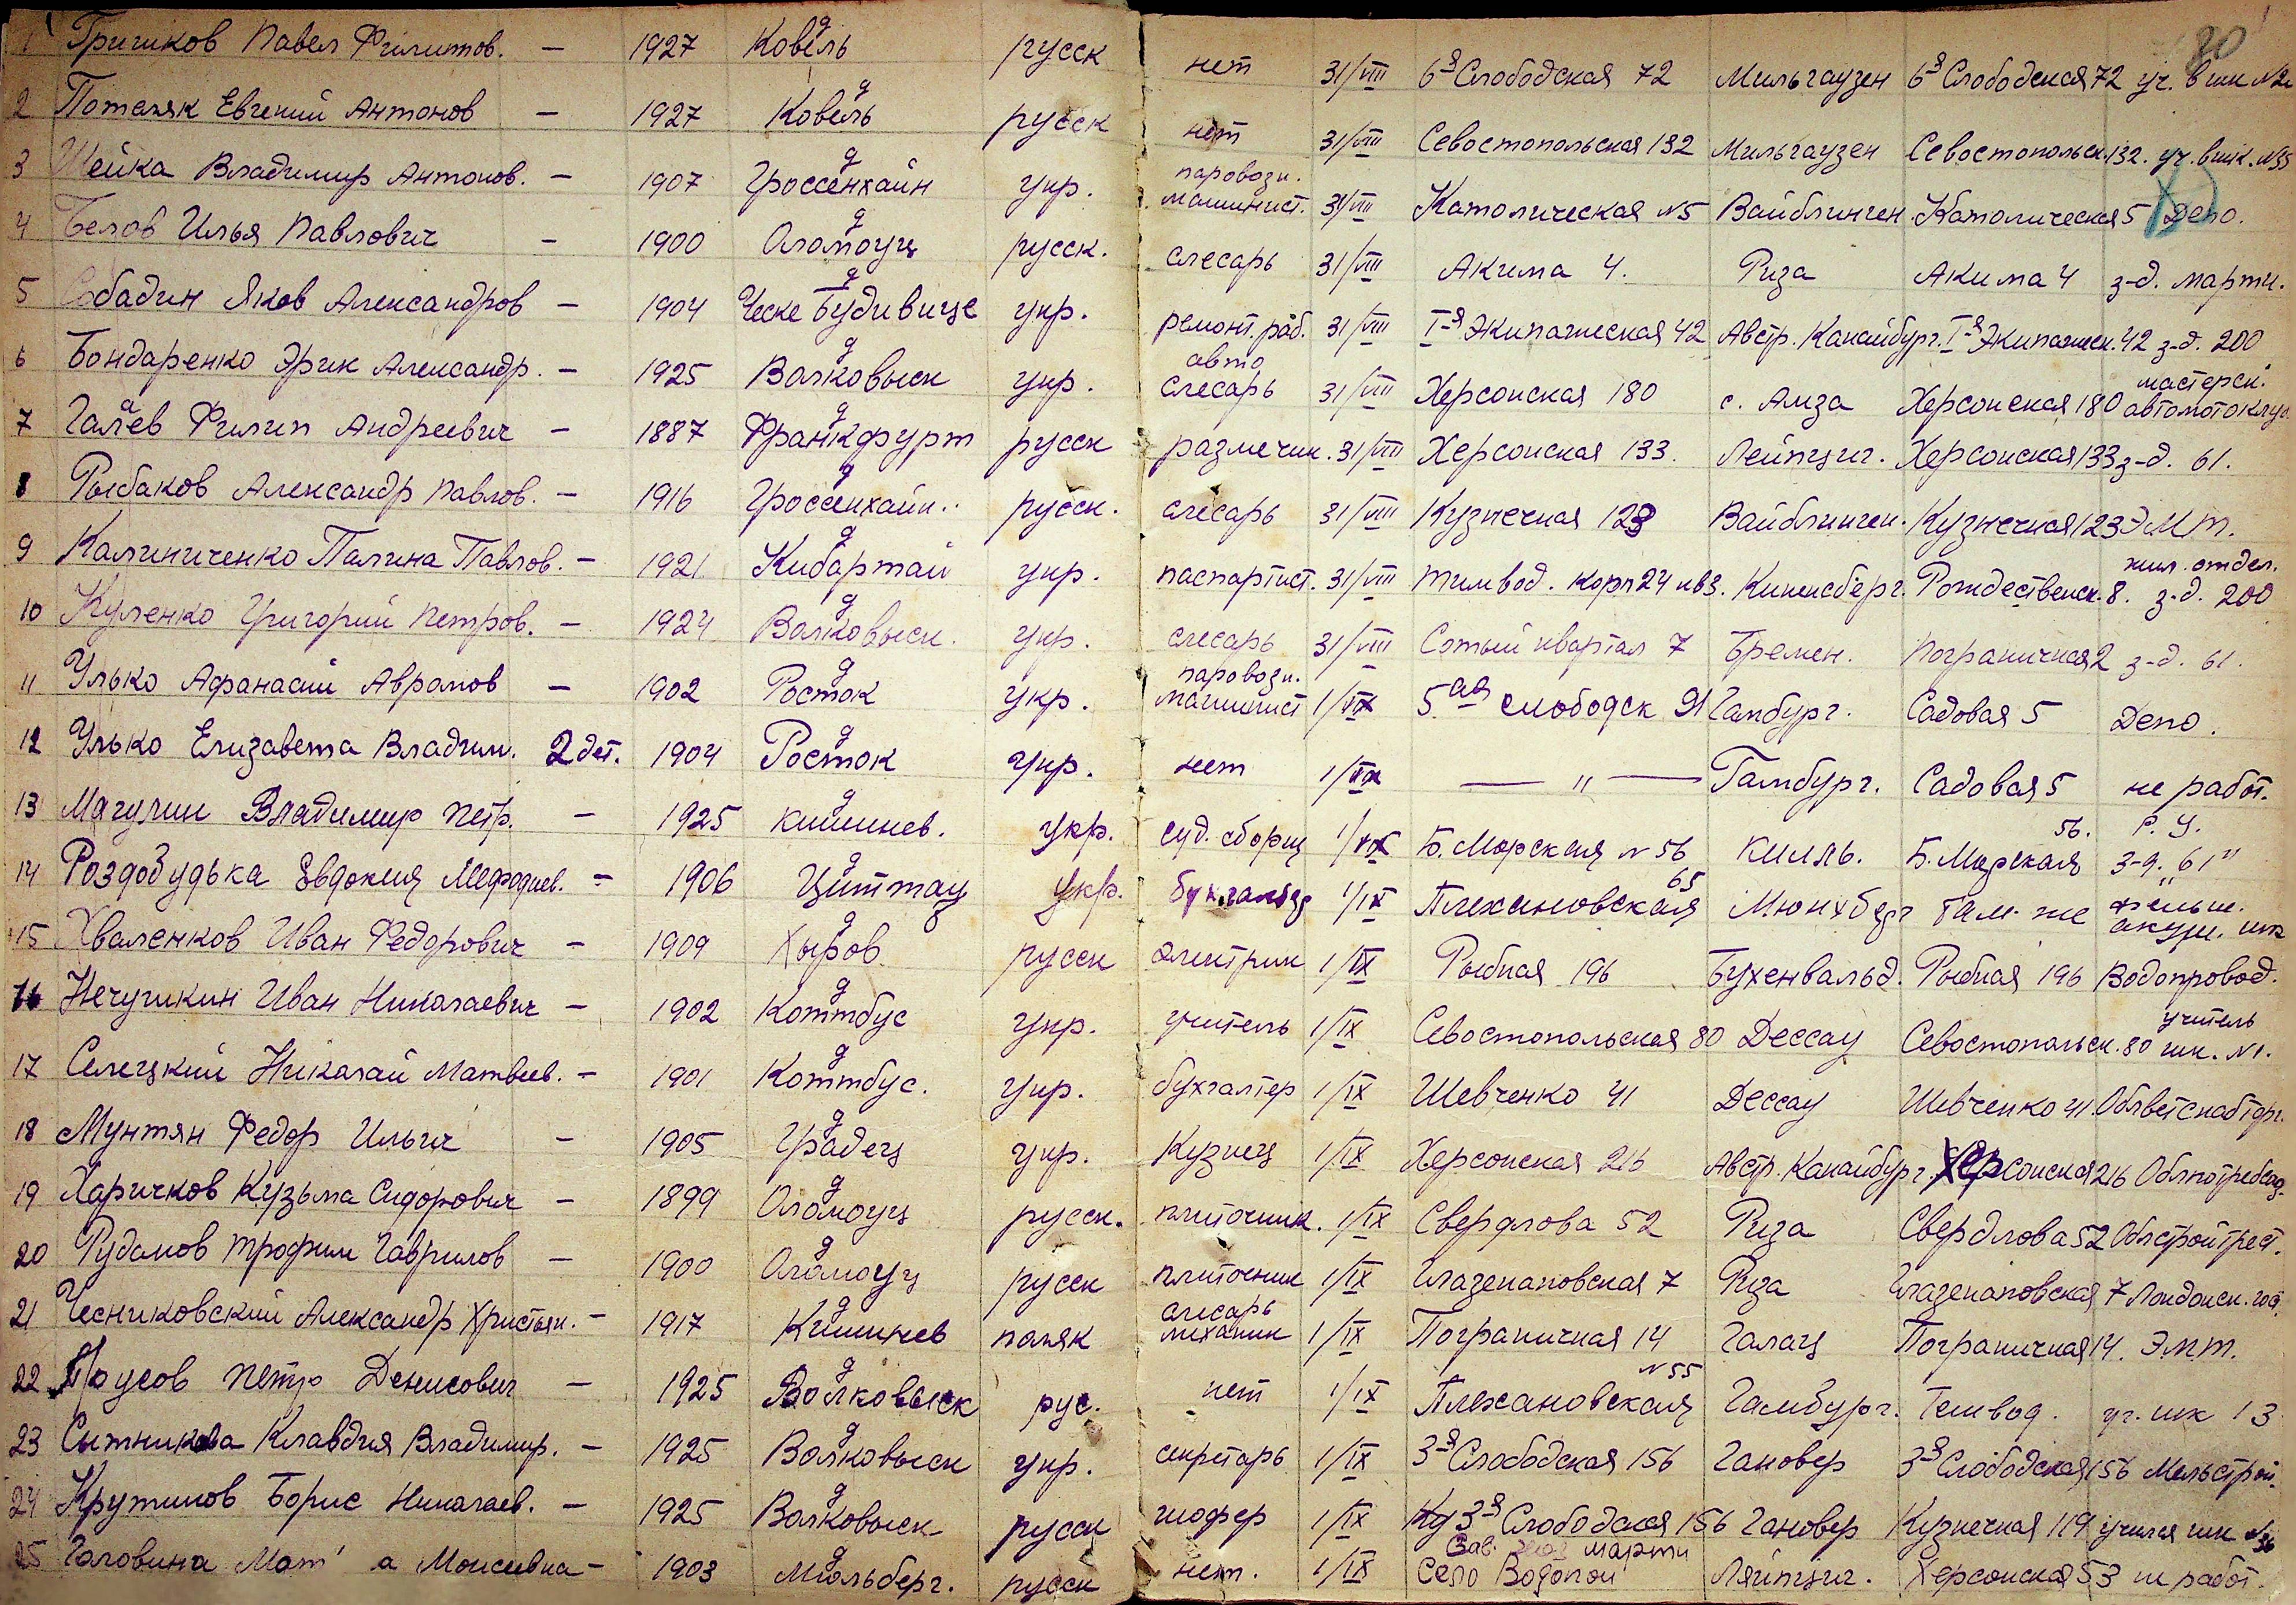 80
1 Гришков Павел Филипов. — 1927 Ковель русск нет 31/VIII 6я Слободская 72 Мильгаузен 6я Слободская 72 уч. в шк
2 Поталяк Евгений Антонов — 1927 Ковель русск нет 31/VIII Севостопольская 132 Мильгаузен Севостопольск. 132. уч. в шк. №35
3 Шейка Владимир Антонов. — 1907 Гроссенхайн укр. паровозн. машинист. 31/VIII Католическая №5 Вайблинген Католическая 5 Депо.
4 Белов Илья Павлович — 1900 Оломоуц русск. слесарь 31/VIII Акима 4. Риза Акима 4 з-д. марти.
5 Собадин Яков Александров — 1904 Ческе Будивице укр. ремонт. раб. 31/VIII I-я Экипажеская 42 Австр. Капайбург. I-я Экипажеск. 42 з-д. 200
6 Бондаренко Эрик Александр. — 1925 Волковыск укр. авто слесарь 31/VIII Херсонская 180 с. Амза Херсонская 180 мастерск. автомотоклуб.
7 Галаев Филип Андреевич — 1887 Франкфурт русск размечик. 31/VIII Херсонская 133. Лейпциг. Херсонская 133 з-д. 61.
8 Рыбаков Александр Павлов. — 1916 Гроссенхайн.. русск. слесарь 31/VIII Кузнечная 123 Вайблинген. Кузнечная 123 Э.М.т.
9 Калиниченко Палина Павлов. — 1921 Кибартай укр. паспартист. 31/VIII Темвод. корп 24 кв 3. Кинексберг. Рождественск. 8. жил. отдел. з-д. 200
10 Куленко Григорий Петров. — 1924 Волковыск. укр. слесарь 31/VIII Сотый квартал 7 Бремен. Пограничная 2 з-д. 61.
11 Улько Афанасий Аврамов — 1902 Росток укр. паровозн. машинист 1/IX 5.ая слободск 91 Гамбург. Садовая 5 Депо.
12 Улько Елизавета Владим. 2 дет. 1904 Росток укр. нет 1/IX — " — Гамбург. Садовая 5 не работ.
13 Мягулин Владимир Петр. — 1925 кишинев. укр. суд. сборщ 1/IX Б. Морская №56 киль. Б. Морская 56. Р.У. з-д. "61"
14 Роздобудька Евдокия Мефодиев. — 1906 Циттау укр. бухгалтер 1/IX Плехановская 65 Мюнхберг там-же фельш. акуш. шк
15 Хваленков Иван Федорович — 1909 Хыров русск электрик 1/IX Рыбная 196 Бухенвальд. Рыбная 196 Водопровод.
16 Нечушкин Иван Николаевич — 1902 Коттбус укр. учитель 1/IX Севостопольская 80 Дессау Севостопольск. 80 учитель шк. №1.
17 Селецкий Николай Матвеев. — 1901 Коттбус. укр. бухгалтер 1/IX Шевченко 41 Дессау Шевченко 41 Облветснабторг.
18 Мунтян Федор Ильич — 1905 Градец укр. Кузнец 1/IX Херсонская 216 Австр. Капайбург. Херсонская 216 Облпотребсоюз.
19 Харичков Кузьма Сидорович — 1899 Оломоуц русск. плиточник. 1/IX Свердлова 52 Риза Свердлова 52 Облстройтрест.
20 Рудамов Трофим Гаврилов — 1900 Оломоуц русск плиточник 1/IX Глазенаповская 7 Риза Глазенаповская 7 Лондонск. гост.
21 Чесниковский Александр Христьян. — 1917 Кишинев поляк слесарь механик 1/IX Пограничная 14 Галац Пограничная 14. Э.М.т.
22 Прусов Петр Денисович — 1925 Волковыск рус. нет 1/IX Плехановская №55 Гамбург. Темвод. уч. шк 13
23 Сытникова Клавдия Владимир. — 1925 Волковыск укр. секретарь 1/IX 3я Слободская 156 Гановер 3я Слободская 156 Мельстрой.
24 Крутиков Борис Николаев. — 1925 Волковыск русск шофер 1/IX 3я Слободская 156 Гановер Кузнечная 119 учился шк №36
25 Головина Моисеевна — 1903 Мюльберг. русск нет. 1/IX Зав. марти Село Водопой Ляйпциг. Херсонская 53 не работ.